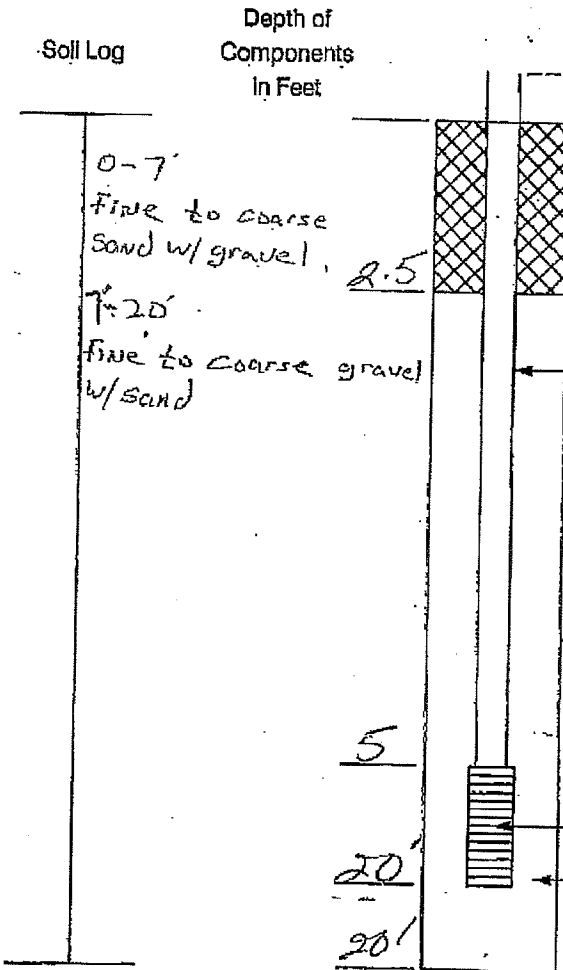 Soil Log
Depth of
Components
in Feet
0-7'
Fine to coarse
Sand w/ gravel.
2.5
7'-20'
fine to coarse gravel
w/sand
5
20'
20'